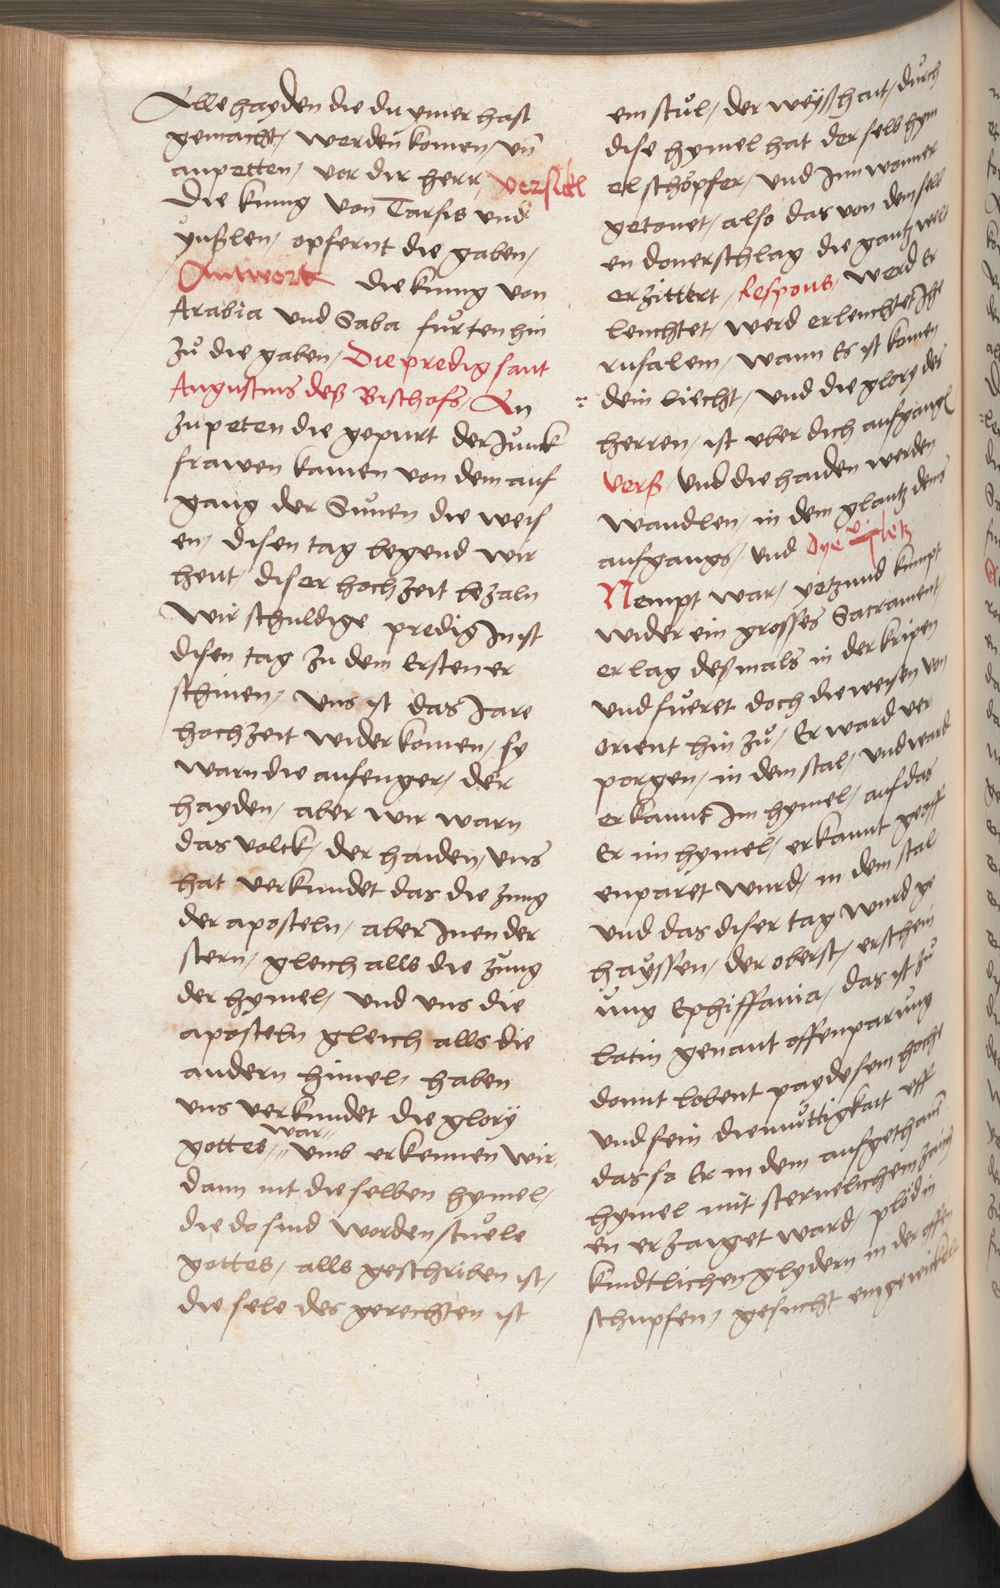 Alle hayden die du ymer hast
gemacht, werden komen, vn̄
anpetten, vor dir herr, Versickl
Die kunig von Tarsis vnd
ynßlen, opfernt die gaben,
Antwort die kunig von
Arabia vnd Saba fuͦrten hin
zuͦ die gaben, Die predig sant
Augustins deß Bischofs, An
zupeten die gepurt der Junck
frawen kamen von dem auf
gang der Sunen die weis
en, disen tag begend wir
heut, diser hochzeit bezaln
wir schuldige predig In ist
disen tag zu dem Ersten er
schinen, vns ist das Jare
hochzeit wider komen, sy
warn die anfenger, der
hayden, aber wir warn
das volck, der haiden, vns
hat verkundet das die zung
der aposteln, aber Inen der
stern, gleich alls die zung
der hymel, vnd vns die
aposteln gleich alls die
andern himel, haben
vns verkundet die glory
gottes, war vmb erkennen wir
dann nit die selben hymel,
die do sind worden stuele
gottes, alls geschriben ist,
die sele des gerechten ist
ein stuͦl, der weyßhait, durch
dise hymel hat der selb hym
el schöpfer, vnd Inn wonner
getonet, also das von dem selb
en donerschlag die gantz welt
erzittert, Respons, werd Er
leuchtet, werd erleuchtet Jhe
rusalem, wann Es ist komen
dein liecht, vnd die glory des
herren, ist vber dich aufgangē
Verß vnd die haiden werden
wandlen, in dem glantz deins
aufgangs, vnd Dye v letz
Nempt war, yetzund kumpt
wider ein grosses Sacrament,
er lag deßmals in der kripen
vnd fueret doch die weisen von
orient hin zuͦ, Er ward ver
porgen, in dem stal, vnd ward
erkannt Im hymel, auf das
Er im hymel, erkannt geoff
enparet wurd, in dem stal
vnd das diser tag wurd ge
hayssen, der oberst, erschein
ung Ephiffania, das ist zuͦ
latin genant offenparung
domit lobent payde sein hocht
vnd sein diemuͦttigkait uff
das so Er in dem aufgethanē
hymel mit sternelichem zaich
en erzaiget ward, plöd in
kindtlichen glydern in der offen
schupfen, gesucht eingewickelt